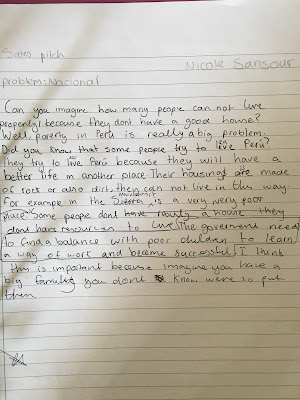 Sales pitch
Nicole Sansour
problem: Nacional
Can you imagine how many people can not live
properly because they dont have a good house?
Well, poverty in Perú is really a big problem.
Did you know that some people try to live Perú?
They try to live Perú because they will have a
better life in another place. Their housing are made
of rock or also dirt, then can not live in this way.
For example in the Sierra is a very very poor
place. Some peope dont have really a house they
dont have resources to live. The goverment need
to find a balance with poor children to learn
a way of work and become successful. I think
this is important because imagine you have a
big family you dont know were to put
them.